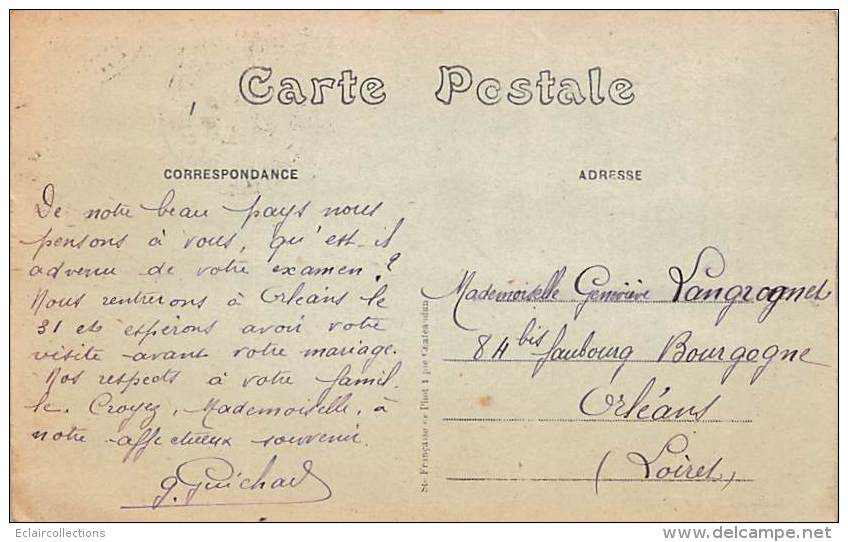 Carte Postale
CORRESPONDANCE
De notre beau pays nous
pensons à vous, qu'est-il
advenu de votre examen?
Nous rentrerons à Orléans le
31 et espérons avoir votre
visite avant votre mariage.
Nos respects à votre famil-
le. Croyez, Mademoiselle, à
notre affectueux souvenir.
G. Guichard
Sté Française de Phot
ADRESSE
Mademoiselle Geneviève Langrognet
84 bis faubourg Bourgogne
Orléans
(Loiret)
Eclaircollections
www.delcampe.net